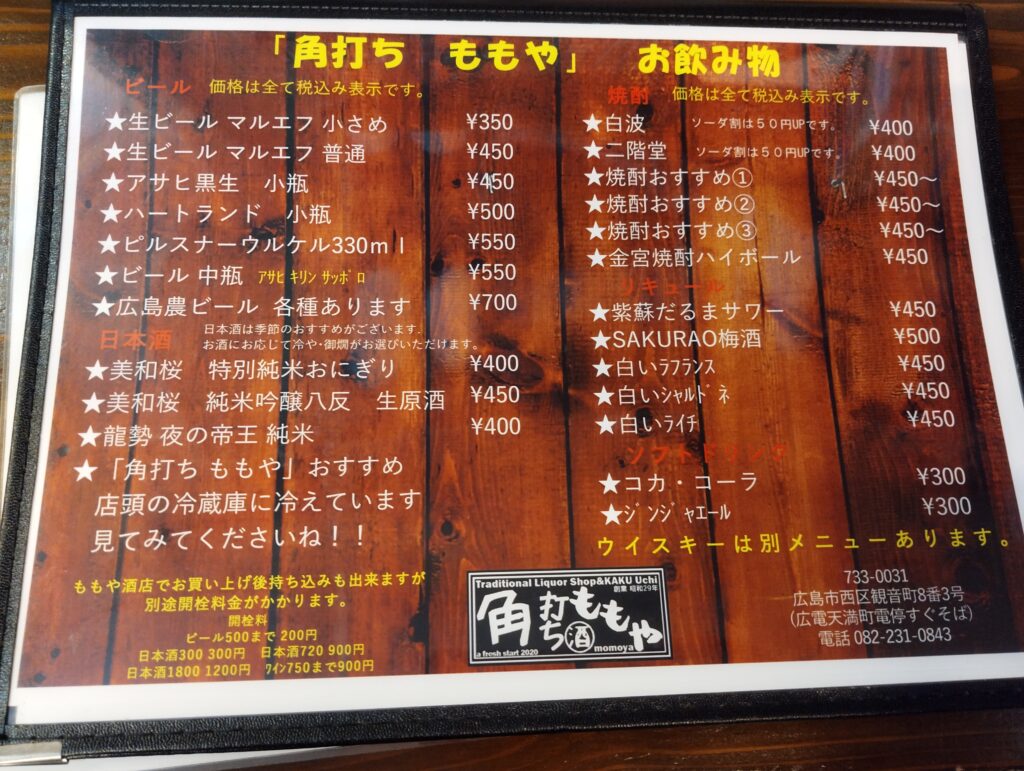 「角打ち ももや」 お飲み物
ビール 価格は全て税込み表示です。
★生ビール マルエフ 小さめ ¥350
★生ビール マルエフ 普通 ¥450
★アサヒ黒生 小瓶 ¥450
★ハートランド 小瓶 ¥500
★ピルスナーウルケル330ml ¥550
★ビール 中瓶 ｱｻﾋ ｷﾘﾝ ｻｯﾎﾟﾛ ¥550
★広島農ビール 各種あります ¥700
日本酒 日本酒は季節のおすすめがございます.
お酒にお応じて冷や･御燗がお選びいただけます。
★美和桜 特別純米おにぎり ¥400
★美和桜 純米吟醸八反 生原酒 ¥450
★龍勢 夜の帝王 純米 ¥400
★「角打ち ももや」おすすめ
店頭の冷蔵庫に冷えています
見てみてくださいね！！
ももや酒店でお買い上げ後持ち込みも出来ますが
別途開栓料金がかかります。
開栓料
ビール500まで 200円
日本酒300 300円 日本酒720 900円
日本酒1800 1200円 ﾜｲﾝ750まで900円
焼酎 価格は全て税込み表示です。
★白波 ソーダ割は５０円UPです。 ¥400
★二階堂 ソーダ割は５０円UPです。 ¥400
★焼酎おすすめ① ¥450～
★焼酎おすすめ② ¥450～
★焼酎おすすめ③ ¥450～
★金宮焼酎ハイボール ¥450
リキュール
★紫蘇だるまサワー ¥450
★SAKURAO梅酒 ¥500
★白いﾗﾌﾗﾝｽ ¥450
★白いｼｬﾙﾄﾞﾈ ¥450
★白いﾗｲﾁ ¥450
ソフトドリンク
★コカ・コーラ ¥300
★ｼﾞﾝｼﾞｬｴｰﾙ ¥300
ウイスキーは別メニューあります。
Traditional Liquor Shop&KAKU Uchi
創業 昭和29年
角打ち ももや
酒
a fresh start 2020 momoya
733-0031
広島市西区観音町8番3号
(広電天満町電停すぐそば)
電話 082-231-0843